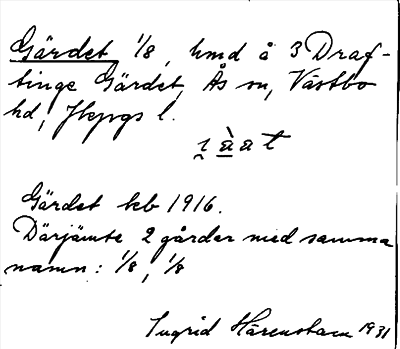 Gärdet 1/8, hmd å 3 Draf-
tinge Gärdet, Ås sn, Västbo
hd, Jkpgs l.
Gärdet kb 1916.
Därjämte 2 gårder med samma
namn: 1/8, 1/8
Ingrid Härenstam 1931